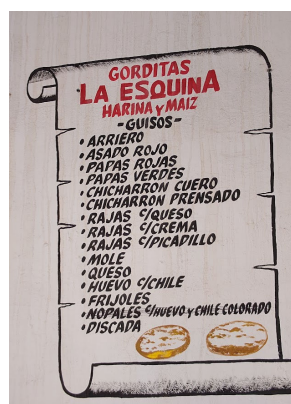 GORDITAS
LA ESQUINA
HARINA Y MAIZ
-GUISOS-
• ARRIERO
• ASADO ROJO
• PAPAS ROJAS
• PAPAS VERDES
• CHICHARRON CUERO
• CHICHARRON PRENSADO
• RAJAS C/QUESO
• RAJAS C/CREMA
• RAJAS C/PICADILLO
• MOLE
• QUESO
• HUEVO C/CHILE
• FRIJOLES
• NOPALES C/HUEVO Y CHILE COLORADO
• DISCADA